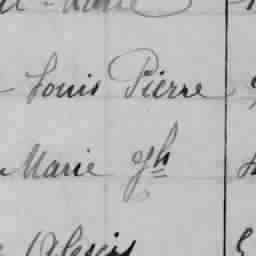 Louis Pierre
Marie Jh
Alexis